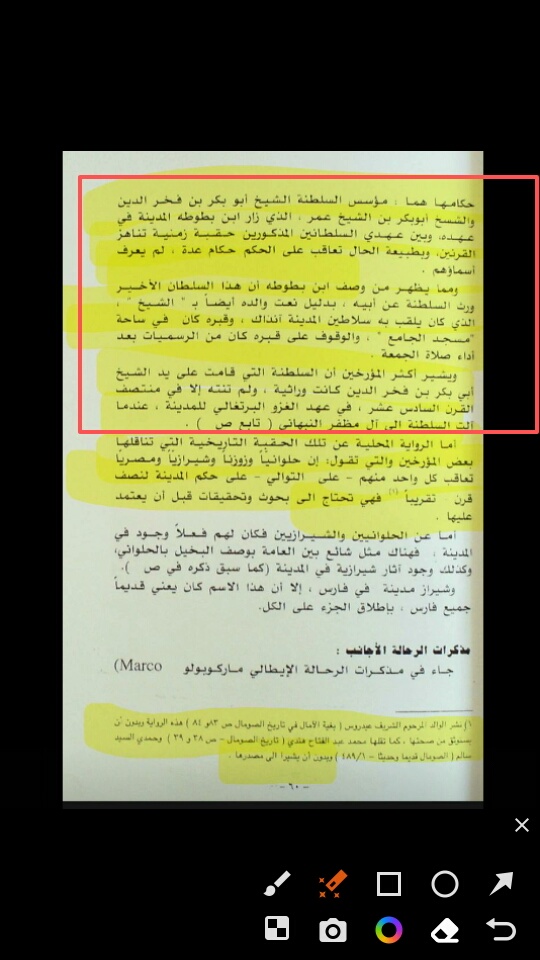 حكامها هما : مؤسس السلطنة الشيخ أبو بكر بن فخر الدين
والشيخ أبوبكر بن الشيخ عمر ، الذي زار ابن بطوطه المدينة في
عهده، وبين عهدي السلطانين المذكورين حقبة زمنية تناهز
القرنين، وبطبيعة الحال تعاقب على الحكم حكام عدة ، لم يعرف
أسماؤهم .
ومما يظهر من وصف ابن بطوطه أن هذا السلطان الأخير
ورث السلطنة عن أبيه ، بدليل نعت والده أيضاً بـ " الشيخ " ،
الذي كان يلقب به سلاطين المدينة آنذاك ، وقبره كان في ساحة
"مسجد الجامع " ، والوقوف على قبره كان من الرسميات بعد
أداء صلاة الجمعة .
ويشير أكثر المؤرخين أن السلطنة التي قامت على يد الشيخ
أبي بكر بن فخر الدين كانت وراثية ، ولم تنته إلا في منتصف
القرن السادس عشر ، في عهد الغزو البرتغالي للمدينة ، عندما
آلت السلطنة الى آل مظفر النبهاني ( تابع ص ) .
أما الرواية المحلية عن تلك الحقبة التاريخية التي تناقلها
بعض المؤرخين والتي تقول: إن حلوانياً وزوزناً وشيرازياً ومصرياً
تعاقب كل واحد منهم - على التوالي - على حكم المدينة لنصف
قرن تقريباً (١) فهي تحتاج الى بحوث وتحقيقات قبل أن يعتمد
عليها .
أما عن الحلوانيين والشيرازيين فكان لهم فعلاً وجود في
المدينة ، فهناك مثل شائع بين العامة بوصف البخيل بالحلواني،
وكذلك وجود آثار شيرازية في المدينة (كما سبق ذكره في ص ).
وشيراز مدينة في فارس ، إلا أن هذا الاسم كان يعني قديماً
جميع فارس ، بإطلاق الجزء على الكل.
مذكرات الرحالة الأجانب :
جاء في مذكرات الرحالة الإيطالي ماركوبولو (Marco
١) نشر الوالد المرحوم الشريف عيدروس ( بغية الآمال في تاريخ الصومال ص ٨٣ و ٨٤ ) هذه الرواية وبدون أن
يستوثق من صحتها ، كما نقلها محمد عبد الفتاح هندي ( تاريخ الصومال - ص ٣٨ و ٣٩ ) وحمدي السيد
سالم ( الصومال قديما وحديثا - ٤٨٩/١ ) وبدون أن يشيرا الى مصدرها .
- ٦٠ -